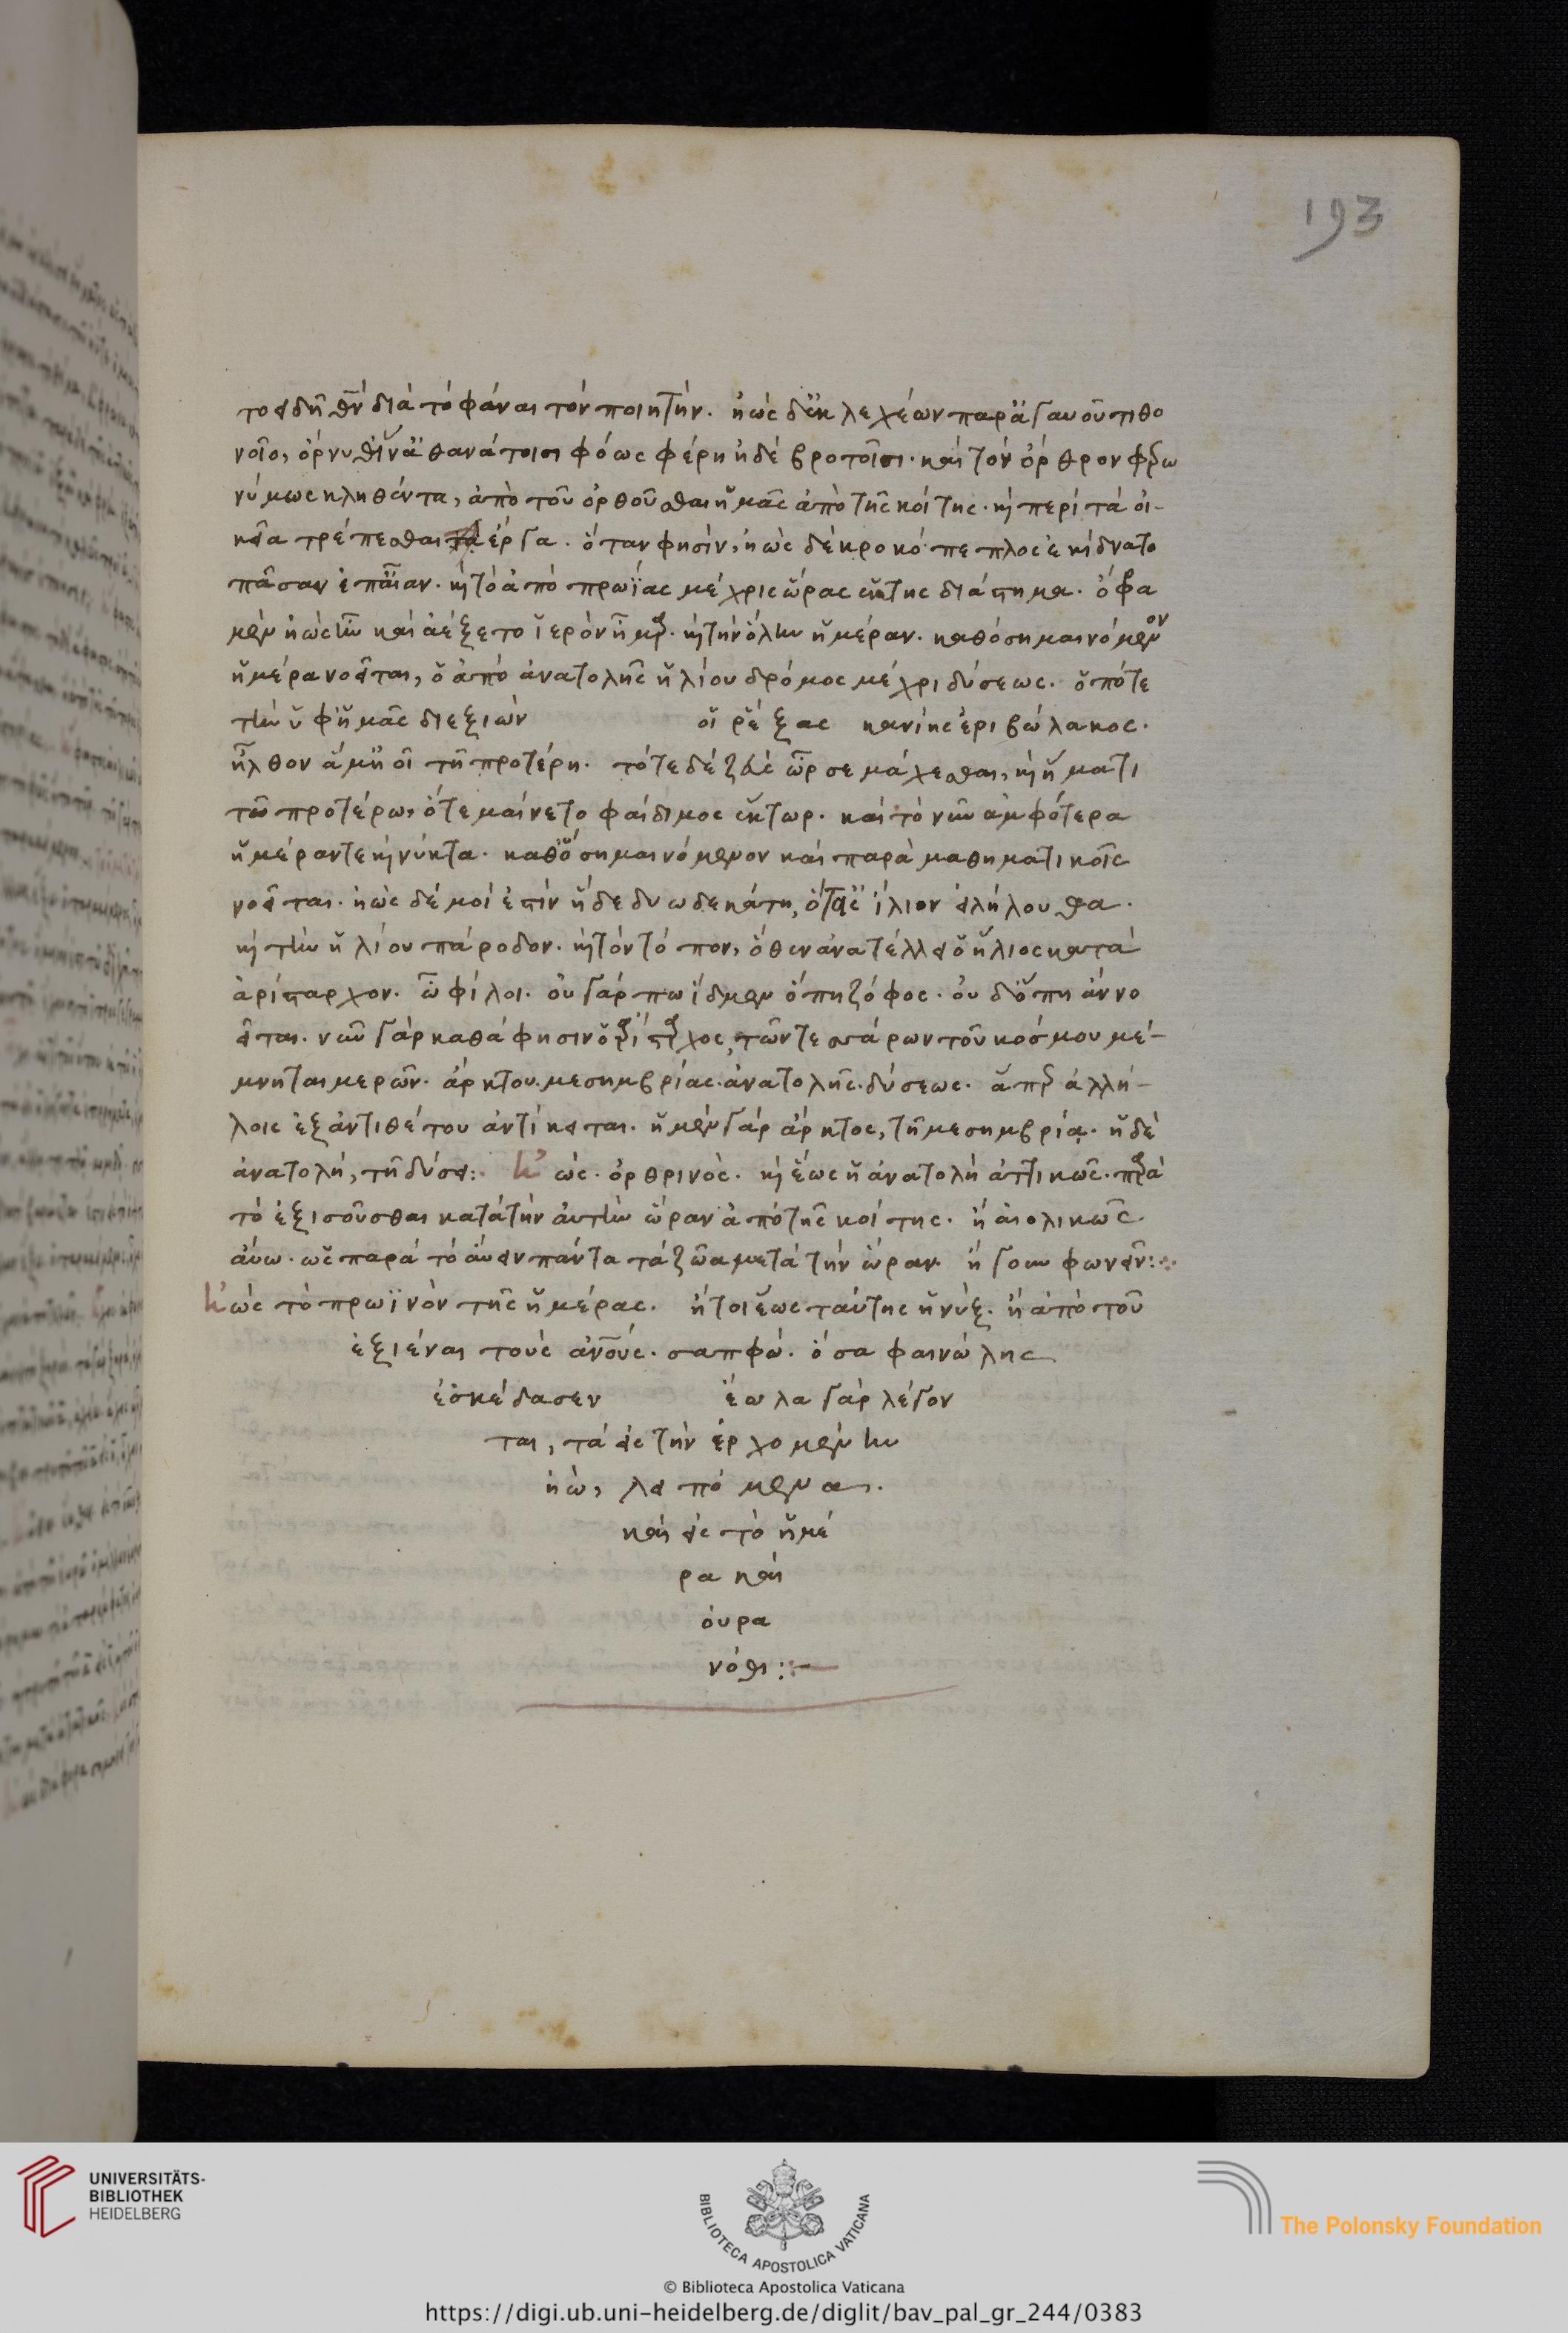 193
το εἰδεῖν διὰ τὸ φάναι τὸν ποιητήν. ἠὼς δ' ἐκ λεχέων παρ' ἀγαυοῦ τιθο
νοῖο, ὄρνυθ' ἵν' ἀθανάτοισι φόως φέρη ἠδὲ βροτοῖσι. καὶ τὸν ὄρθρον φερω
νύμως κληθέντα, ἀπὸ τοῦ ὀρθοῦσθαι ἡμᾶς ἀπὸ τῆς κοίτης. καὶ περὶ τὰ οἰ-
κεῖα τρέπεσθαι ἔργα. ὅταν φησὶν, ἠὼς δὲ κροκόπεπλος ἐκίδνατο
πᾶσαν ἐπ' αἶαν. καὶ τὸ ἀπὸ πρωΐας μέχρις ὥρας ἕκτης διάστημα. ὄφρα
μὲν ἠὼς ἦν καὶ ἀέξετο ἱερὸν ἦμαρ. καὶ τὴν ὅλην ἡμέραν. καθ' ὃ σημαινόμενον
ἡμέρα νοεῖται, ὁ ἀπὸ ἀνατολῆς ἡλίου δρόμος μέχρι δύσεως. ὁπότε
τὴν ὑφ' ἡμᾶς διεξιὼν οἱ ῥέξας κανίης ἐριβώλακος.
ἦλθον ἅμ' ἠοῖ τῆ προτέρη. τότε δὲ ζεὺς ὦρσε μάχεσθαι, καὶ ἤματι
τῶ προτέρω, ὅτε μαίνετο φαίδιμος ἕκτωρ. καὶ τὸ νῦν ἀμφότερα
ἡμέραν τε καὶ νύκτα. καθ' ὃ σημαινόμενον καὶ παρὰ μαθηματικοῖς
νοεῖται. ἠὼς δέ μοί ἐστιν ἥδε δυωδεκάτη, ὅτ' ἐς ἴλιον εἰλήλουθα.
καὶ τὴν ἡλίου πάροδον. καὶ τὸν τόπον, ὅθεν ἀνατέλλει ὁ ἥλιος κατὰ
ἀρίσταρχον. ὦ φίλοι. οὐ γάρ πω ἴδμεν ὅπη ζόφος. οὐ δ' ὅπη ἀν νο
εῖται. νῦν γὰρ καθά φησιν ὁ ἀρίσταρχος, τῶν τεσσάρων τοῦ κόσμου μέ-
μνηται μερῶν. ἄρκτου. μεσημβρίας. ἀνατολῆς. δύσεως. ἃ παρ' ἀλλή-
λοις ἐξ ἀντιθέτου ἀντίκειται. ἡ μὲν γὰρ ἄρκτος, τῆ μεσημβρία. ἡ δὲ
ἀνατολή, τῆ δύσει: ἠὼς. ὀρθρινὸς. καὶ ἕως ἡ ἀνατολὴ ἀττικῶς. παρὰ
τὸ ἐξισοῦσθαι κατὰ τὴν αὐτὴν ὥραν ἀπὸ τῆς κοίτης. ἢ αἰολικῶς
αὔω. ὡς παρὰ τὸ αὔειν πάντα τὰ ζῶα μετὰ τὴν ὥραν. ἤγουν φωνεῖν:
ἠὼς τὸ πρωϊνὸν τῆς ἡμέρας. ἤτοι ἕως ταύτης ἡ νύξ. ἢ ἀπὸ τοῦ
ἐξιέναι τοὺς ἀνους. σαπφώ. ὅσα φαινώλης
ἐσκέδασεν ἕωλα γὰρ λέγον
ται, τὰ εἰς τὴν ἐρχομένην
ἠὼ, λειπόμενα.
καὶ εἰς τὸ ἡμέ
ρα καὶ
οὐρα
νόθι:
UNIVERSITÄTS-
BIBLIOTHEK
HEIDELBERG
BIBLIOTECA APOSTOLICA VATICANA
The Polonsky Foundation
© Biblioteca Apostolica Vaticana
https://digi.ub.uni-heidelberg.de/diglit/bav_pal_gr_244/0383